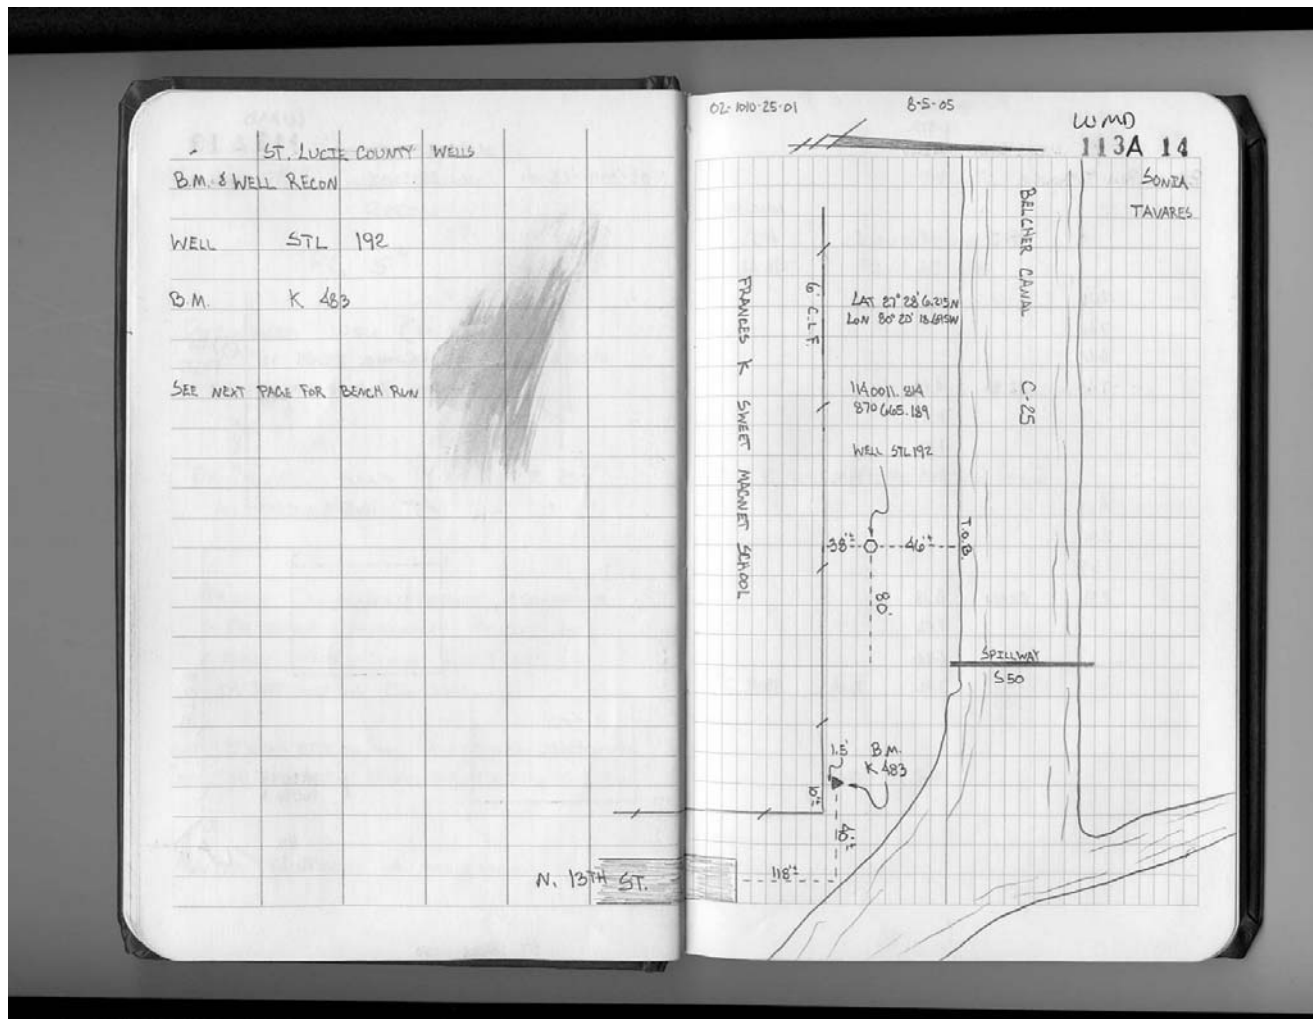 ST. LUCIE COUNTY WELLS
B.M. & WELL RECON
WELL STL 192
B.M. K 483
SEE NEXT PAGE FOR BENCH RUN
N. 13TH ST.
02-1010-25-01
8-5-05
WMD
113A 14
SONIA
TAVARES
BELCHER CANAL C-25
FRANCES K SWEET MAGNET SCHOOL
6' C.L.F.
LAT 27° 28' 6.215N
LON 80° 20'
114 0011.814
870 665.189
WELL STL 192
38'±
46'±
T.O.B.
80'
SPILLWAY
S50
1.5'
B.M.
K 483
40'±
118'±